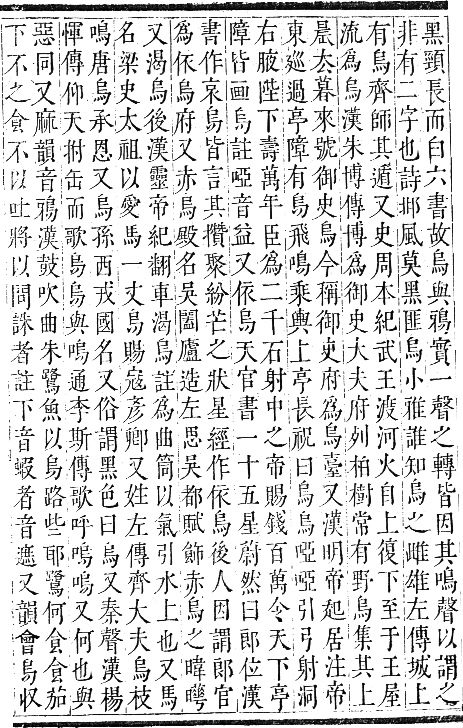 黑頸長而白六書故烏與鴉實一聲之轉皆因其鳴聲以謂之
非有二字也詩邶風莫黑匪烏小雅誰知烏之雌雄左傳城上
有烏齊師其遁又史周本紀武王渡河火自上復下至于王屋
流為烏漢朱博傳博為御史大夫府列柏樹常有野烏集其上
晨去暮來號御史烏今稱御史府為烏臺又漢明帝起居注帝
東巡過亭障有烏飛鳴乘輿上亭長祝曰烏烏啞啞引弓射洞
右腋陛下壽萬年臣為二千石射中之帝賜錢百萬令天下亭
障皆画烏註啞音益又依烏天官書一十五星蔚然曰郎位漢
書作哀烏皆言其攢聚紛芒之狀星經作依烏後人因謂郎官
為依烏府又赤烏殿名吳闔廬造左思吳都賦飾赤烏之暐曄
又渴烏後漢靈帝紀翻車渴烏註為曲筒以氣引水上也又馬
名梁史太祖以愛馬一丈烏賜寇彥卿又姓左傳齊大夫烏枝
鳴唐烏承恩又烏孫西戎國名又俗謂黑色曰烏又秦聲漢楊
惲傳仰天拊缶而歌烏烏與嗚通李斯傳歌呼嗚嗚又何也與
惡同又麻韻音鴉漢鼓吹曲朱鷺魚以烏路些耶鷺何食食茄
下不之食不以吐將以問誅者註下音蝦者音遮又韻會烏收